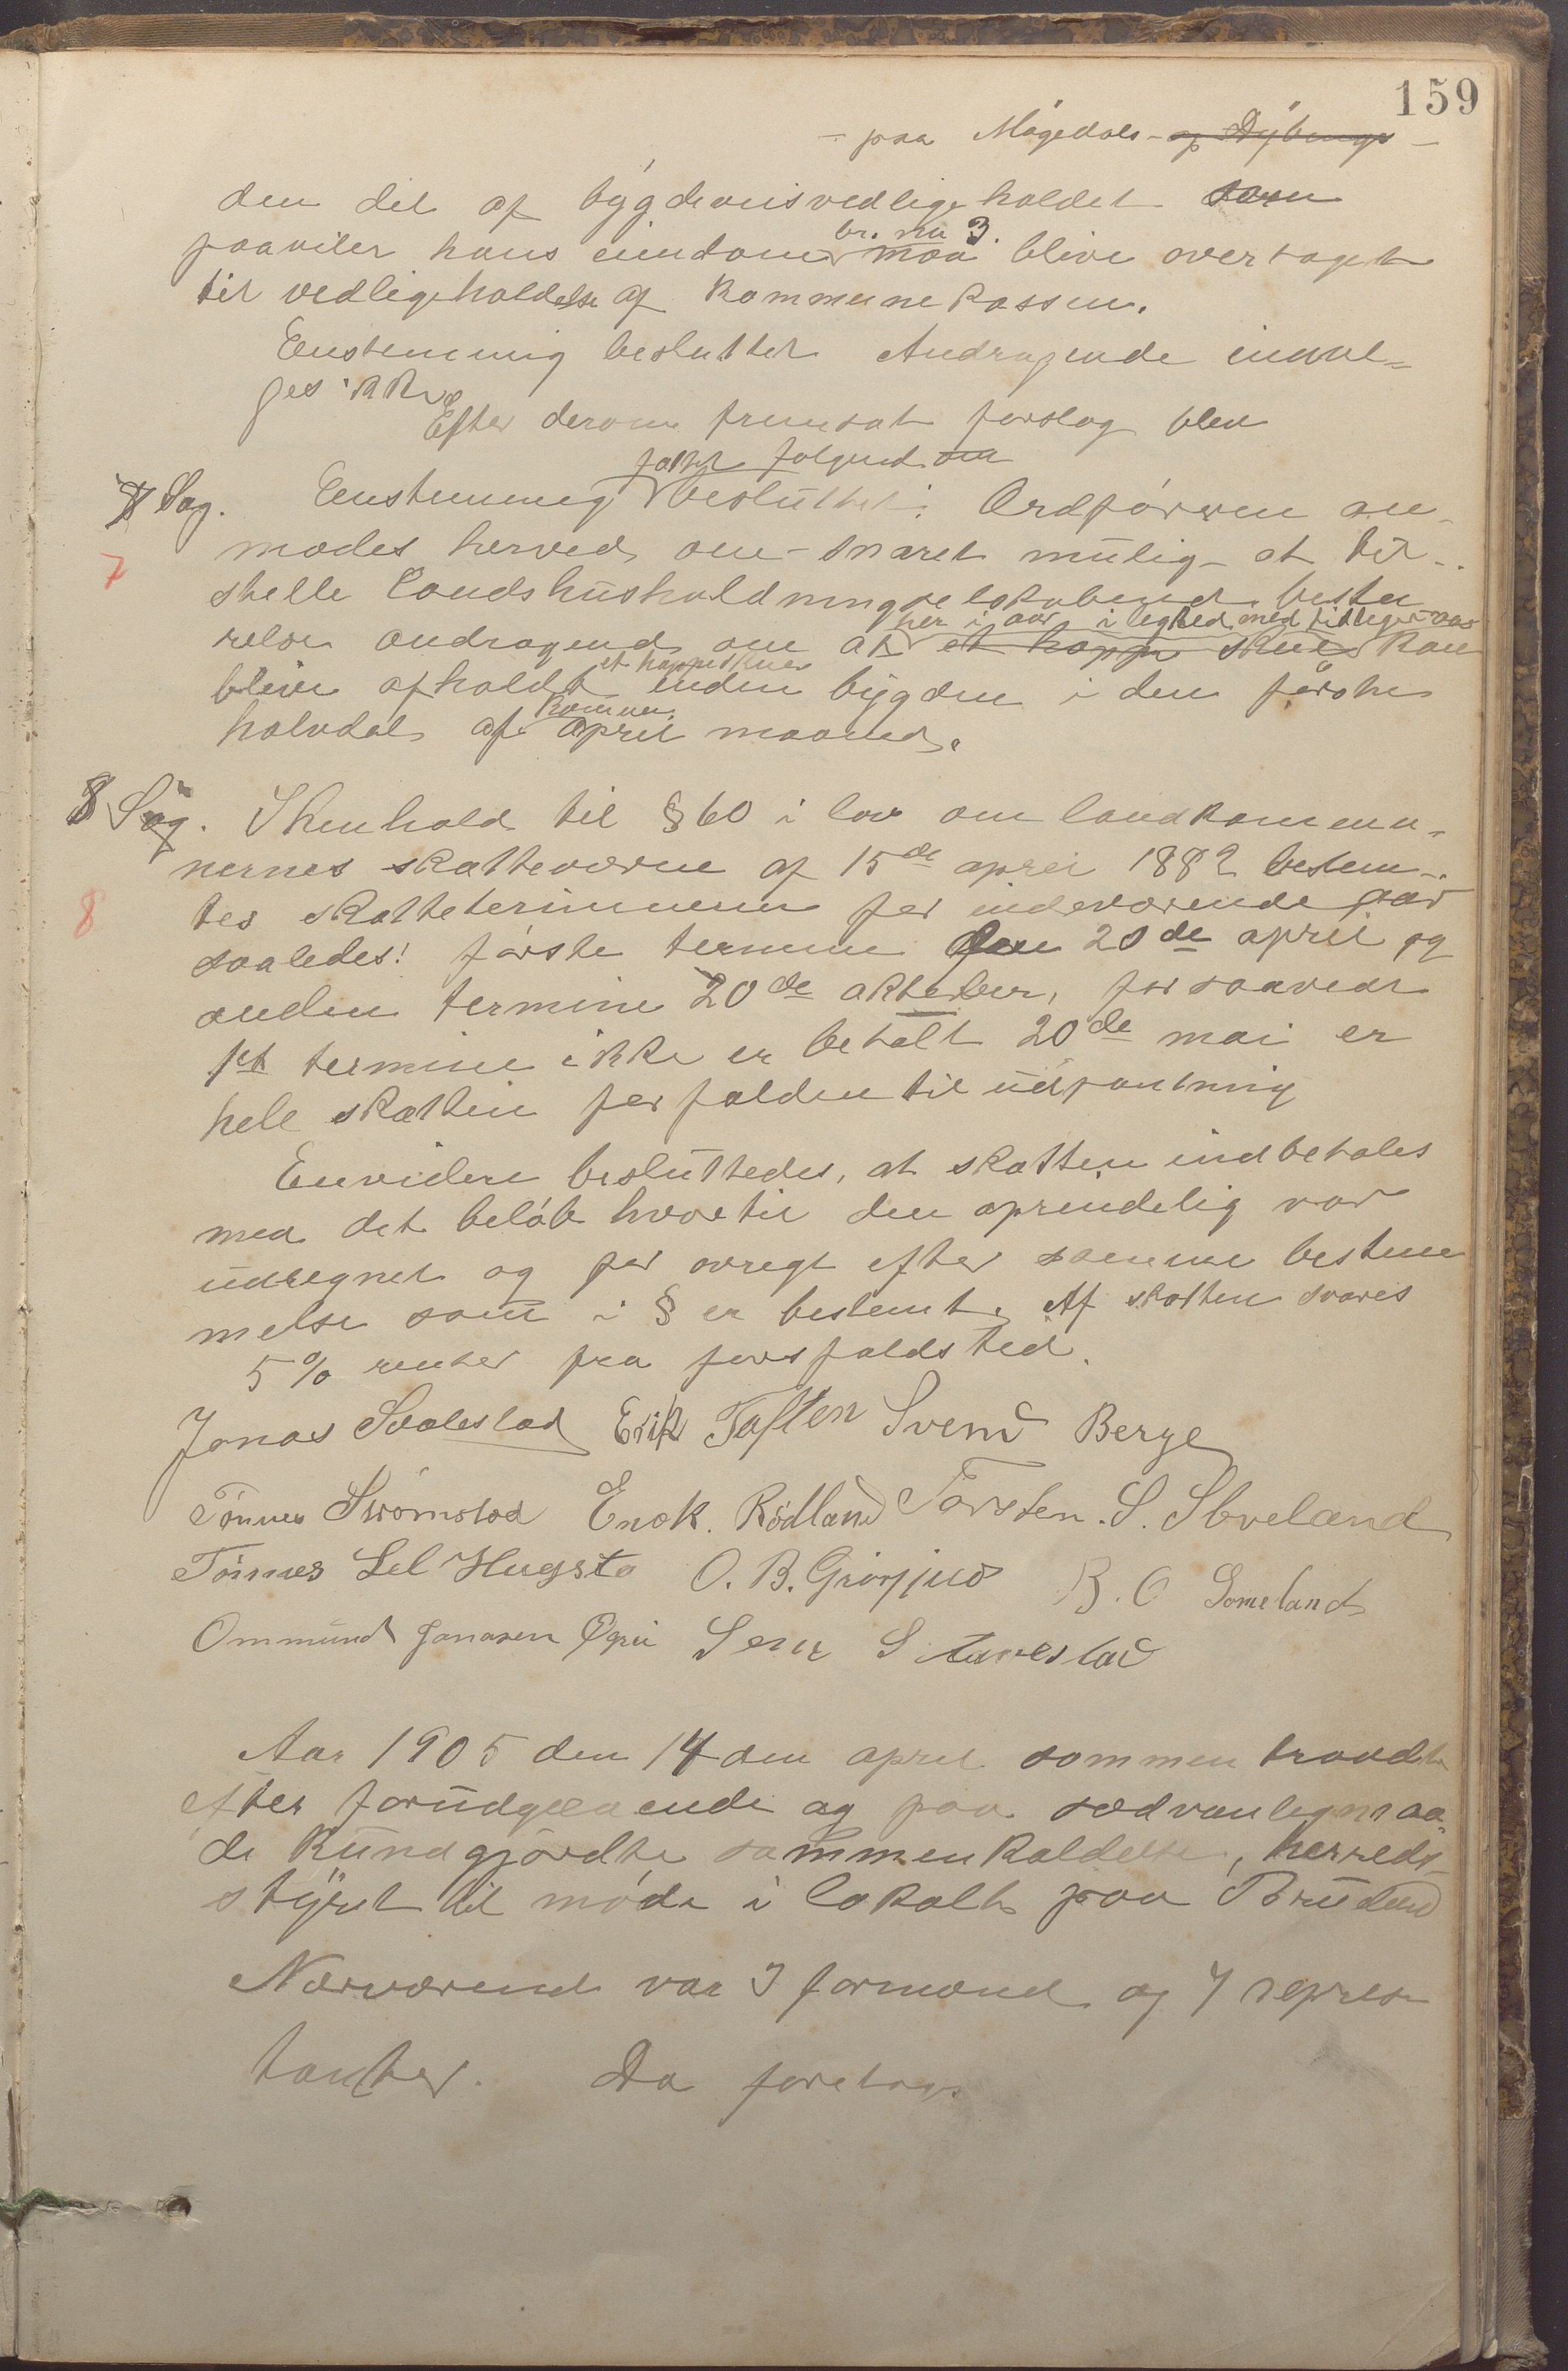 159
- paa Mögedals- og Dybings -
den del af bygdeveisvedligeholdet som
br. no 3.
paaviler hans eiendom maa blive overtaget
til vedligeholdelse af kommunekassen.
Eenstemmig besluttet Andragende indvil-
ges ikke
Efter derom fremsat forslag blev
fattet følgende
7 Sag. Eenstemmig besluttet: Ordföreren an-
7
modes herved om - snarest mulig - at til-
stelle Landshusholdningselskabends besty
her i aar i lighed med tidligere aar
relse andragend om at et hoppe skue kan
et hoppeskue
blive afholdt inden bygden i den første
kommen.
halvdel af april maaned.
8 Sag. I henhold til § 60 i lov om landkommu-
nernes skattevæsen af 15de april 1882 bestem-
8
tes skatteterminerne for indeværende aar
saaledes: første termine den 20de april og
anden termine 20de oktober, forsaavidt
1st termine ikke er betalt 20de mai er
hele skatten forfalden til udpantning
Envidere besluttedes, at skatten indbetales
med det beløb hvortil den oprindelig var
udregnet og for øvrigt efter samme bestem
melse som i § er bestemt. Af skatten svares
5 % renter fra forfaldstid.
Jonas Svalestad Erik Tøften Svend Berge
Tønnes Strømstad Enok. Rødland Torsten. S. Stveland
Tønnes Hugsto O. B. B. O Someland
Ommund Jonasen Ogrei S
Aar 1905 den 14den april sammentraadte
efter forudgaaende og paa sædvanlig maa-
de kundgjordte sammenkaldelse, herreds-
styret til møde i lokalt paa Bruland
Nærværend var 3 formænd og 7 represen
tanter. Da foretogs